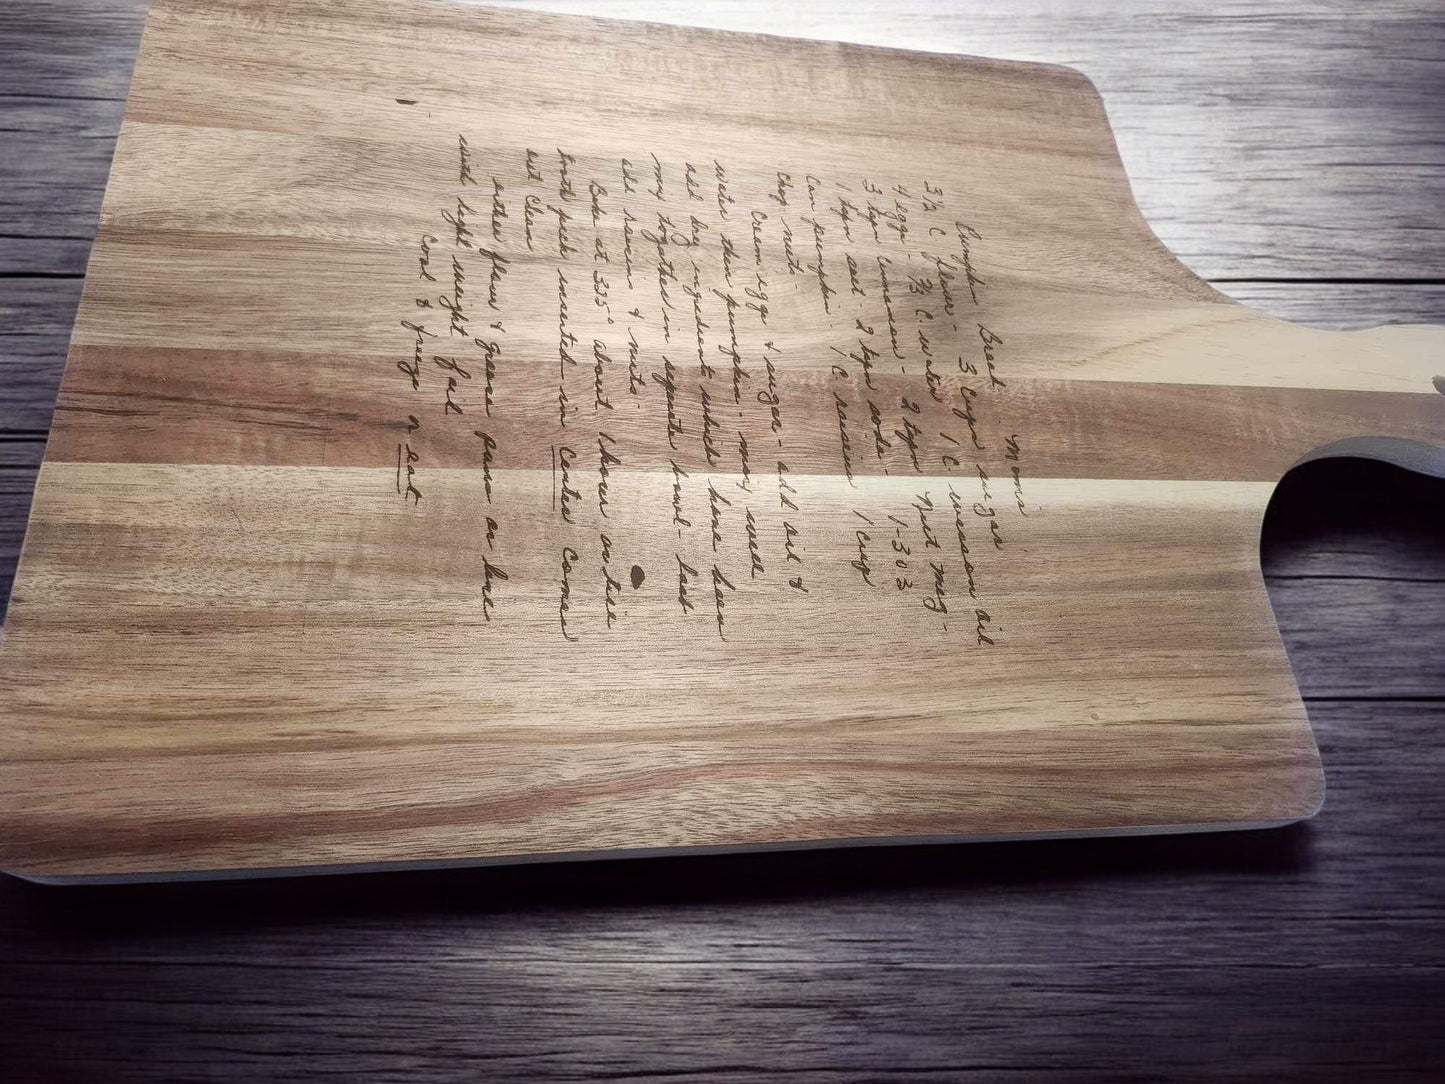 Pumpkin Bread Mom's
3½ C flour - 3 Cups sugar
4 eggs - ⅔ C. water 1 C. wesson oil
3 tspn cinnamon - 2 tspn Nut meg -
1 tspn salt 2 tspn soda - 1-303
Can pumpkin - 1 C. raisins 1 Cup
Chop nuts -
Cream eggs & sugar - add oil &
water then pumpkin - mix well
add dry ingredients which have been
mix together in separate bowl - last
add raisins & nuts.
Bake at 325° about 1 hour or til
tooth pick inserted in center comes
out clean
either flour & grease pans or line
with light weight foil
Cool & freeze or eat